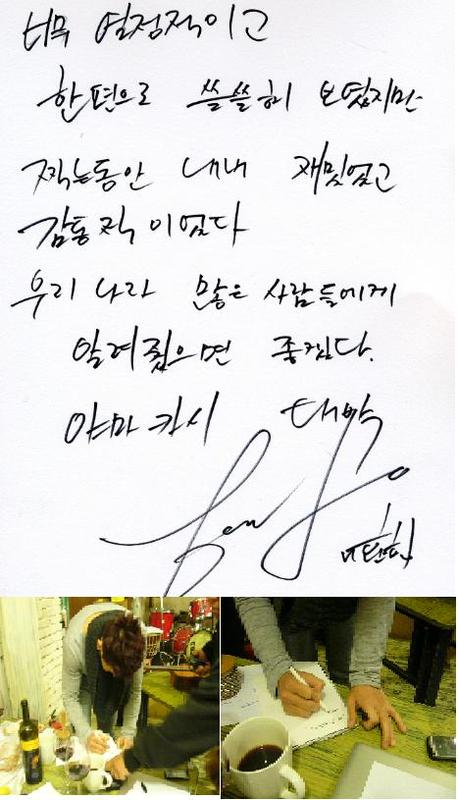 너무 열정적이고
한편으로 쓸쓸히 보였지만
찍는동안 내내 재밌었고
감동적이었다
우리나라 많은 사람들에게
알려졌으면 좋겠다.
야마카시 대박